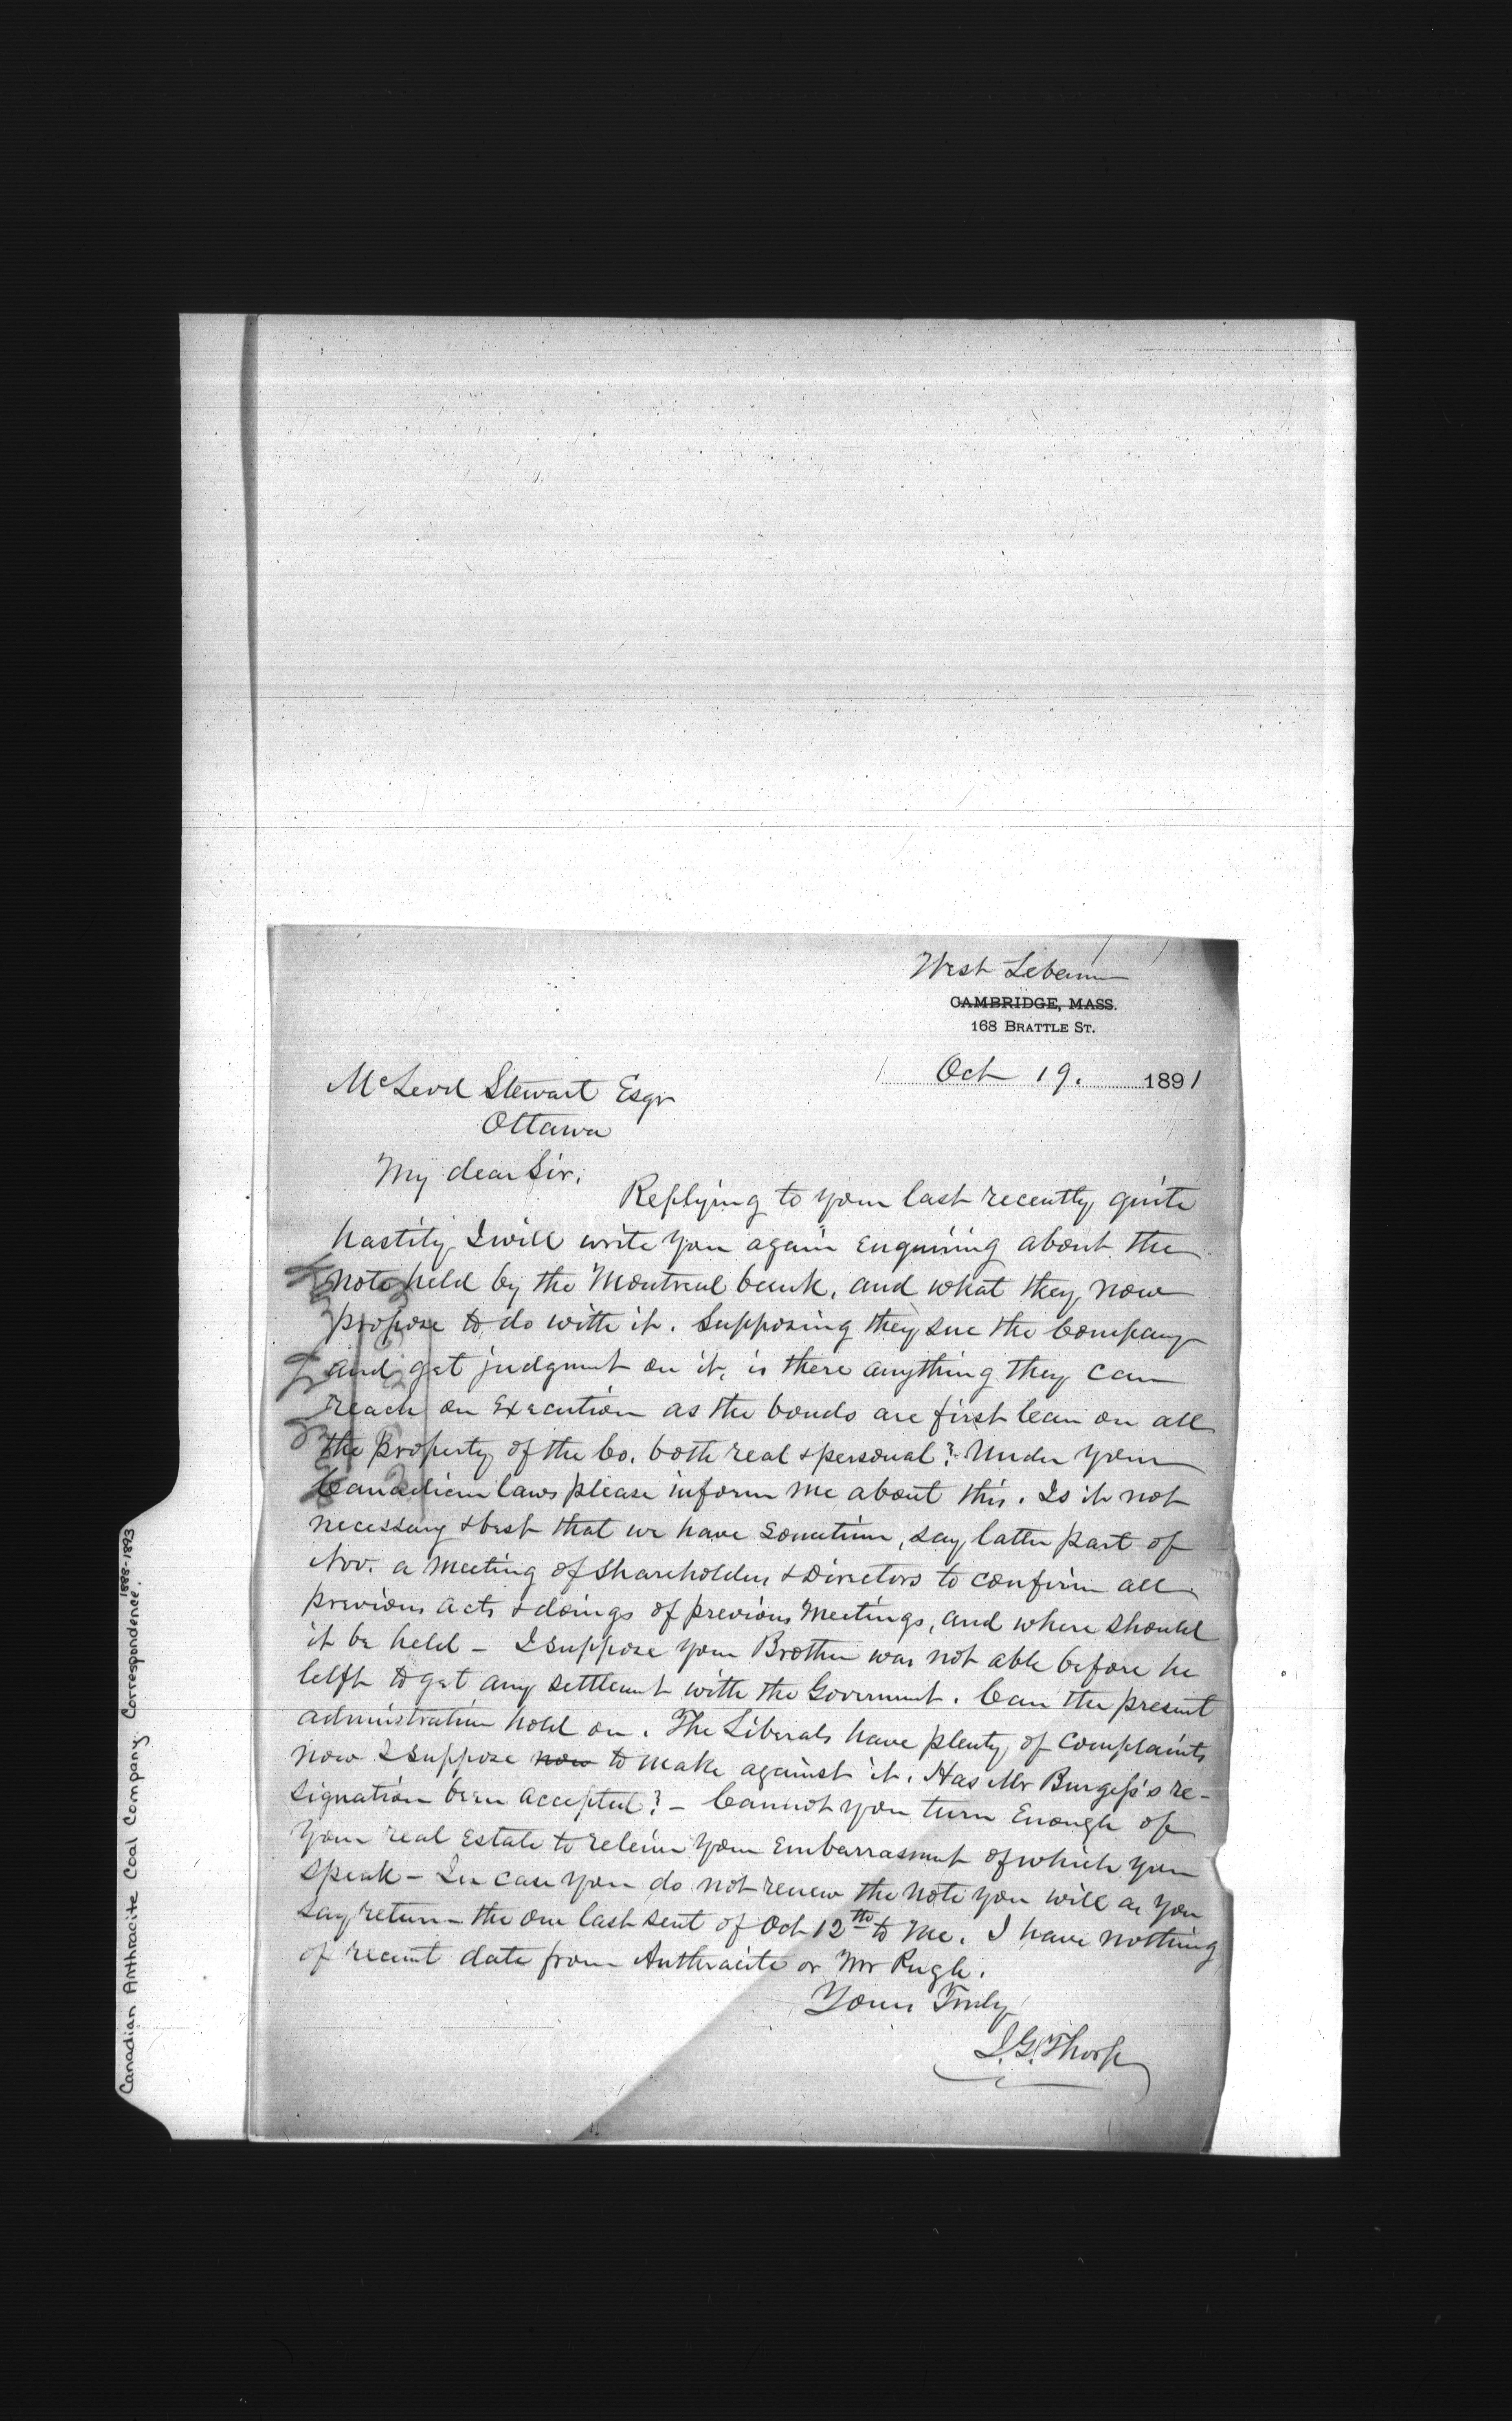 West Lebanon
CAMBRIDGE, MASS.
168 BRATTLE ST.
Oct 19. 1891
McLeod Stewart Esqr
Ottawa
My dear Sir.
Replying to your last recently quite
hastily I will write you again enquiring about the
note held by the Montreal bank, and what they now
propose to do with it. Supposing they sue the Company
and get judgment on it, is there anything they can
reach on Execution as the bonds are first lean on all
the property of the Co. both real & personal? Under your
Canadian laws please inform me about this. Is it not
necessary & best that we have sometime, say latter part of
Nov. a meeting of Shareholders & Directors to confirm all
previous acts & doings of previous Meetings, and where should
it be held - I suppose your Brother was not able before he
lelft to get any settlement with the Goverment. Can the present
administration hold on. The Liberals have plenty of complaints
now I suppose now to make against it. Has Mr Burgess's re-
signation been accepted? - Cannot you turn Enough of
your real Estate to releive your Embarrasment of which you
speak - In case you do not renew the note you will as you
say return - the one last sent of Oct 12th to me. I have nothing
of recent date from Anthracite or Mr Pugh.
Yours Truly
J. G. Thorp
Canadian Anthracite Coal Company. Correspondence.
1888-1893